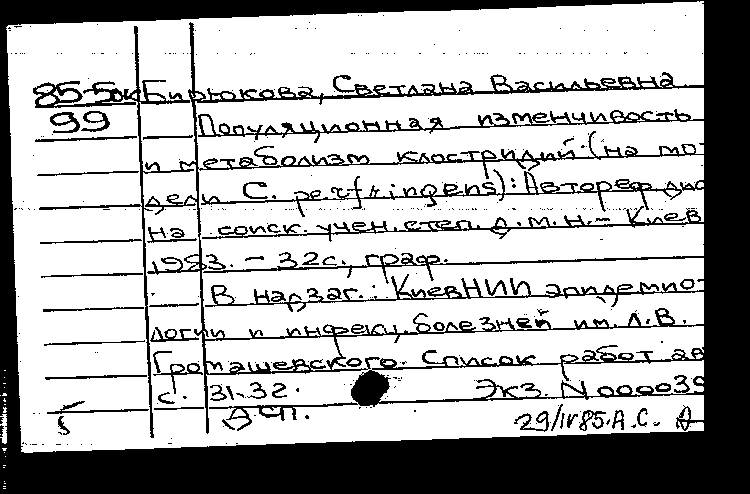 85-5ок Бирюкова, Светлана Васильевна
99 Популяционная изменчивость
и метаболизм клостридий (на мо-
дели C. perfringens): Автореф дис
на соиск. учен. степ. д.м.н. - Киев
1983. - 32с., граф.
В надзаг.: Киев НИИ эпидемио-
логии и инфекц. болезней им. Л.В.
Громашевского. Список работ ав
с. 31-32. Экз. N 000039
29/IV85. А.С.